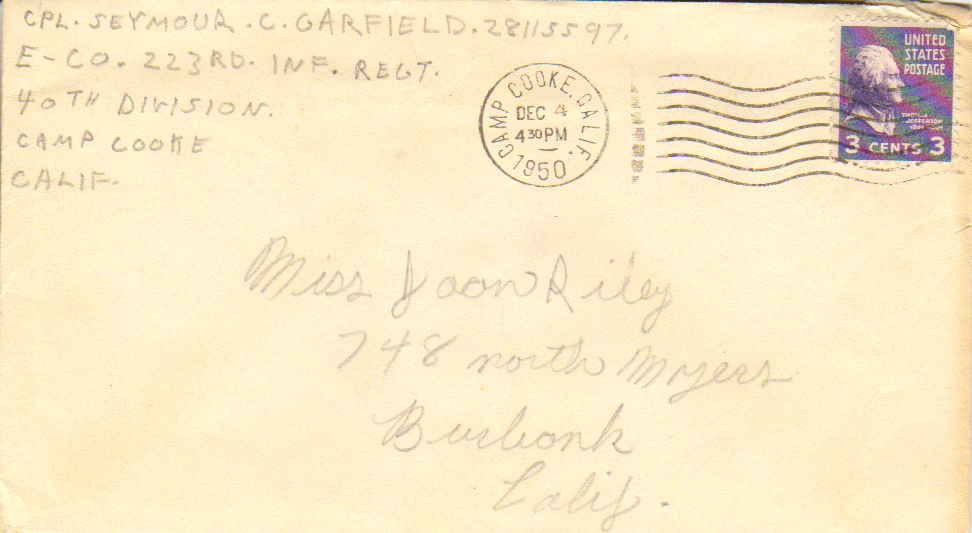 CPL. SEYMOUR. C. GARFIELD. 28115597.
E-CO. 223RD. INF. REGT.
40TH DIVISION.
CAMP COOKE
CALIF.
CAMP COOKE, CALIF.
DEC 4
4 30 PM
1950
UNITED
STATES
POSTAGE
THOMAS
JEFFERSON
3 CENTS 3
Miss Joan Riley
748 north Myers
Burbank
Calif.